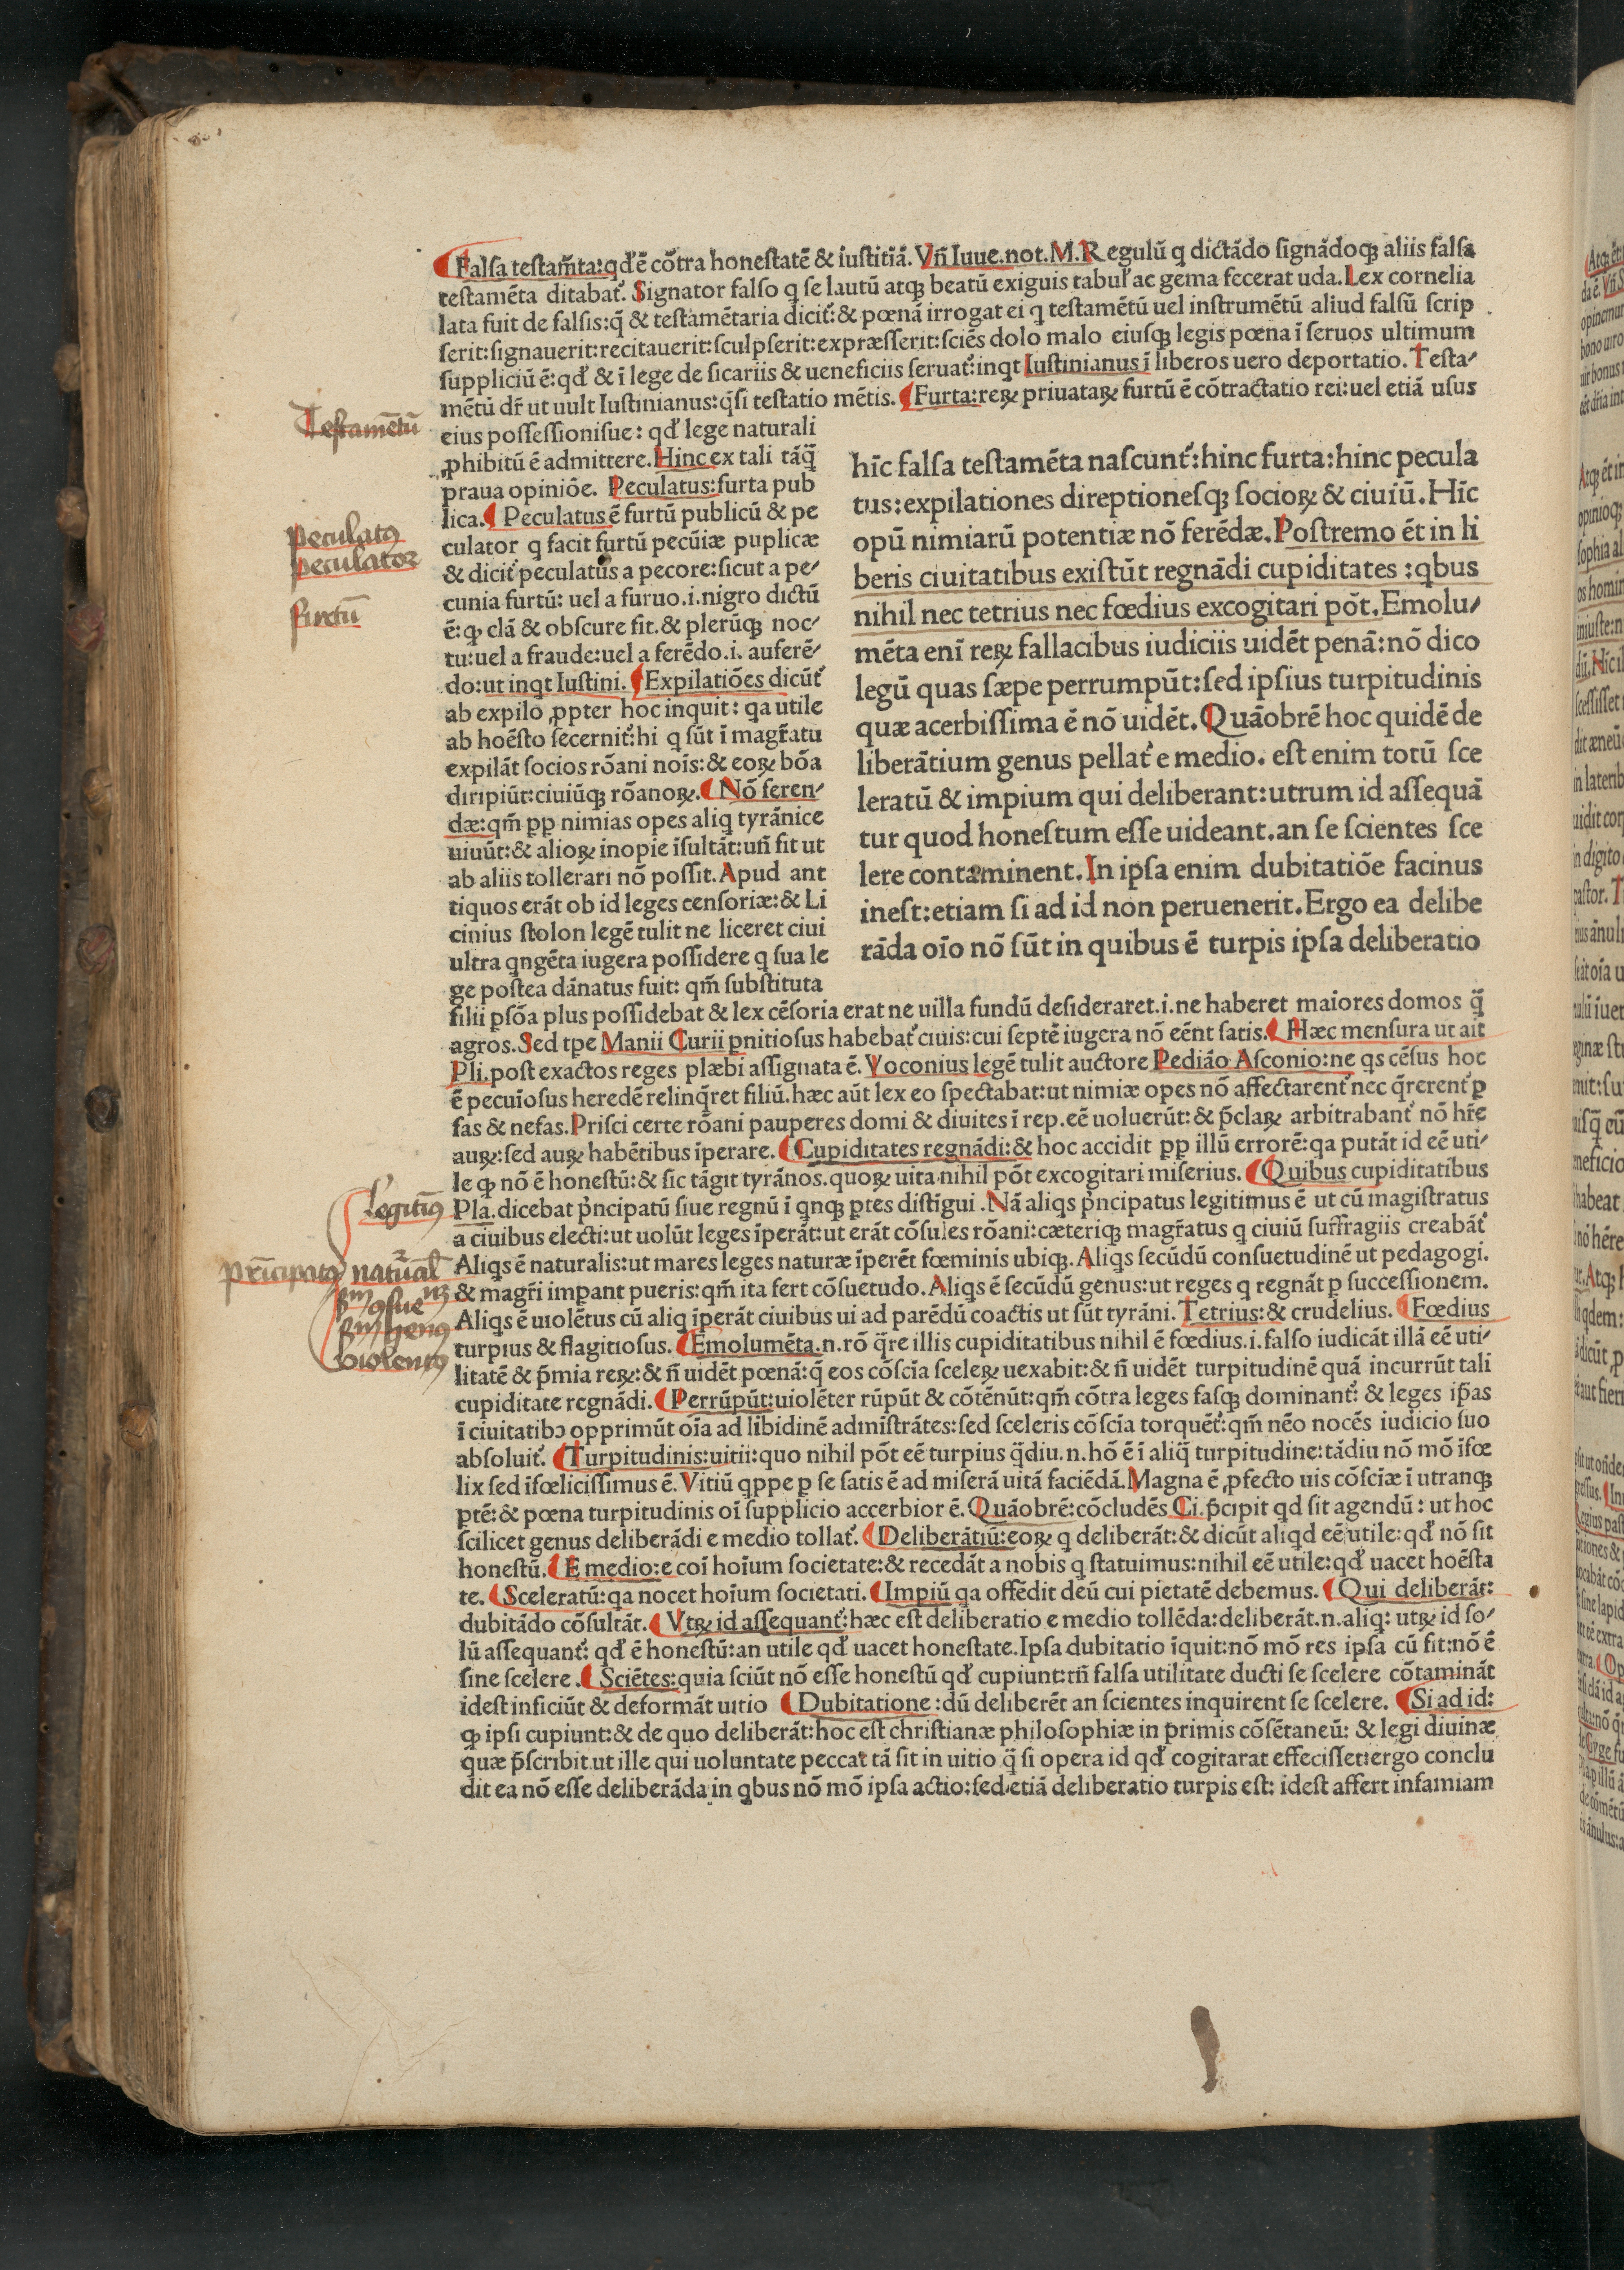 Falsa testam̄ta:qđ ē cōtra honestatē & iustitiā. Vn̄ Iuue.not.M.Regulū q dictādo signādoqꝫ aliis falsa
testamēta ditabat᷑. Signator falso q se lautū atqꝫ beatū exiguis tabuł ac gema fecerat uda. Lex cornelia
lata fuit de falsis:q̄ & testamētaria dicit᷑:& pœnā irrogat ei q testamētū uel instrumētū aliud falsū scrip
serit:signauerit:recitauerit:sculpserit:expræsserit:sciēs dolo malo eiusqꝫ legis pœna ī seruos ultimum
suppliciū ē:qđ & ī lege de sicariis & ueneficiis seruat᷑:inqt Iustinianus ī liberos uero deportatio. Testa⸗
mētū dr̄ ut uult Iustinianus:q̄si testatio mētis. Furta:reꝝ priuataꝝ furtū ē cōtractatio rei:uel etiā usus
eius possessionisue: qđ lege naturali
ꝓhibitū ē admittere. Hinc ex tali tāq̄
praua opiniōe. Peculatus:furta pub
lica. Peculatus ē furtū publicū & pe
culator q facit furtū pecūiæ puplicæ
& dicit᷑ peculatus a pecore:sicut a pe⸗
cunia furtū: uel a furuo.i.nigro dictū
ē:qꝙ clā & obscure fit.& plerūqꝫ noc⸗
tu:uel a fraude:uel a ferēdo.i. auferē⸗
do:ut inqt Iustini. Expilatiōes dicūt᷑
ab expilo ꝓpter hoc inquit: qa utile
ab hoēsto secernit᷑:hi q sūt ī magr̄atu
expilāt socios rōani nois:& eoꝝ bōa
diripiūt:ciuiūqꝫ rōanoꝝ. Nō feren⸗
dæ:qm̄ pp nimias opes aliq tyrānice
uiuūt:& alioꝝ inopie īsultāt:un̄ fit ut
ab aliis tollerari nō possit. Apud ant
tiquos erāt ob id leges censoriæ:& Li
cinius stolon legē tulit ne liceret ciui
ultra qngēta iugera possidere q sua le
ge postea dānatus fuit: qm̄ substituta
hīc falsa testamēta nascunt᷑:hinc furta:hinc pecula
tus:expilationes direptionesqꝫ socioꝝ & ciuiū. Hīc
opū nimiarū potentiæ nō ferēdæ. Postremo ēt in li
beris ciuitatibus existūt regnādi cupiditates :qbus
nihil nec tetrius nec fœdius excogitari pōt. Emolu⸗
mēta enī reꝝ fallacibus iudiciis uidēt penā:nō dico
legū quas sæpe perrumpūt:sed ipsius turpitudinis
quæ acerbissima ē nō uidēt. Quāobrē hoc quidē de
liberātium genus pellat᷑ e medio. est enim totū sce
leratū & impium qui deliberant:utrum id assequā
tur quod honestum esse uideant.an se scientes sce
lere contaminent. In ipsa enim dubitatiōe facinus
inest:etiam si ad id non peruenerit. Ergo ea delibe
rāda oīo nō sūt in quibus ē turpis ipsa deliberatio
filii psōa plus possidebat & lex cēsoria erat ne uilla fundū desideraret.i.ne haberet maiores domos q̄
agros. Sed tpe Manii Curii pnitiosus habebat᷑ ciuis:cui septē iugera nō eēnt satis. Hæc mensura ut ait
Pli.post exactos reges plæbi assignata ē. Voconius legē tulit auctore Pediāo Asconio:ne qs cēsus hoc
ē pecuīosus heredē relinq̄ret filiū.hæc aūt lex eo spectabat:ut nimiæ opes nō affectarent᷑ nec q̄rerent᷑ ꝑ
fas & nefas. Prisci certe rōani pauperes domi & diuites ī rep.eē uoluerūt:& p̄claꝝ arbitrabant᷑ nō hr̄e
auꝝ:sed auꝝ habētibus īperare. Cupiditates regnādi:& hoc accidit pp illū errorē:qa putāt id eē uti⸗
le qꝙ nō ē honestū:& sic tāgit tyrānos.quoꝝ uita nihil pōt excogitari miserius. Quibus cupiditatibus
Pla.dicebat p̄ncipatū siue regnū ī qnqꝫ ptes distīgui .Nā aliqs p̄ncipatus legitimus ē ut cū magistratus
a ciuibus electi:ut uolūt leges īperāt:ut erāt cōsules rōani:cæteriqꝫ magr̄atus q ciuiū suffragiis creabāt᷑
Aliqs ē naturalis:ut mares leges naturæ īperēt fœminis ubiqꝫ. Aliqs secūdū consuetudinē ut pedagogi.
& magr̄i impant pueris:qm̄ ita fert cōsuetudo. Aliqs ē secūdū genus:ut reges q regnāt ꝑ successionem.
Aliqs ē uiolētus cū aliq īperāt ciuibus ui ad parēdū coactis ut sūt tyrāni. Tetrius:& crudelius. Fœdius
turpius & flagitiosus. Emolumēta.n.rō q̄re illis cupiditatibus nihil ē fœdius.i.falso iudicāt illā eē uti⸗
litatē & p̄mia reꝝ:& n̄ uidēt pœnā:q̄ eos cōscīa sceleꝝ uexabit:& n̄ uidēt turpitudinē quā incurrūt tali
cupiditate regnādi. Perrūpūt:uiolēter rūpūt & cōtēnūt:qm̄ cōtra leges fasqꝫ dominant᷑: & leges ip̄as
ī ciuitatibꝫ opprimūt oīa ad libidinē admīstrātes:sed sceleris cōscīa torquēt᷑:qm̄ nēo nocēs iudicio suo
absoluit᷑. Turpitudinis:uitii:quo nihil pōt eē turpius q̄diu.n.hō ē ī aliq̄ turpitudine:tādiu nō mō īfœ
lix sed īfœlicissimus ē. Vitiū qppe ꝑ se satis ē ad miserā uitā faciēdā. Magna ē ꝓfecto uis cōsciæ ī utranqꝫ
ptē:& pœna turpitudinis oī supplicio accerbior ē. Quāobrē:cōcludēs Ci.p̄cipit qd sit agendū: ut hoc
scilicet genus deliberādi e medio tollat᷑. Deliberātiū:eoꝝ q deliberāt:& dicūt aliqd eē utile:qđ nō sit
honestū. E medio:e coī hoīum societate:& recedāt a nobis q statuimus:nihil eē utile:qđ uacet hoēsta
te. Sceleratū:qa nocet hoīum societati. Impiū qa offēdit deū cui pietatē debemus. Qui deliberāt:
dubitādo cōsultāt. Vtꝝ id assequant᷑:hæc est deliberatio e medio tollēda:deliberāt.n.aliq: utꝝ id so⸗
lū assequant᷑: qđ ē honestū:an utile qđ uacet honestate. Ipsa dubitatio īquit:nō mō res ipsa cū fit:nō ē
sine scelere . Sciētes:quia sciūt nō esse honestū qđ cupiunt:tn̄ falsa utilitate ducti se scelere cōtamināt
idest inficiūt & deformāt uitio Dubitatione :dū deliberēt an scientes inquirent se scelere. Si ad id:
qꝙ ipsi cupiunt:& de quo deliberāt:hoc est christianæ philosophiæ in primis cōsētaneū: & legi diuinæ
quæ p̄scribit ut ille qui uoluntate peccat tā sit in uitio q̄ si opera id qđ cogitarat effecisset:ergo conclu
dit ea nō esse deliberāda in qbus nō mō ipsa actio:sed etiā deliberatio turpis est: idest affert infamiam
Testamētū
Peculatꝰ
Peculator
Furtū
Legitiꝰ
Principatꝰ natural
Violentꝰ